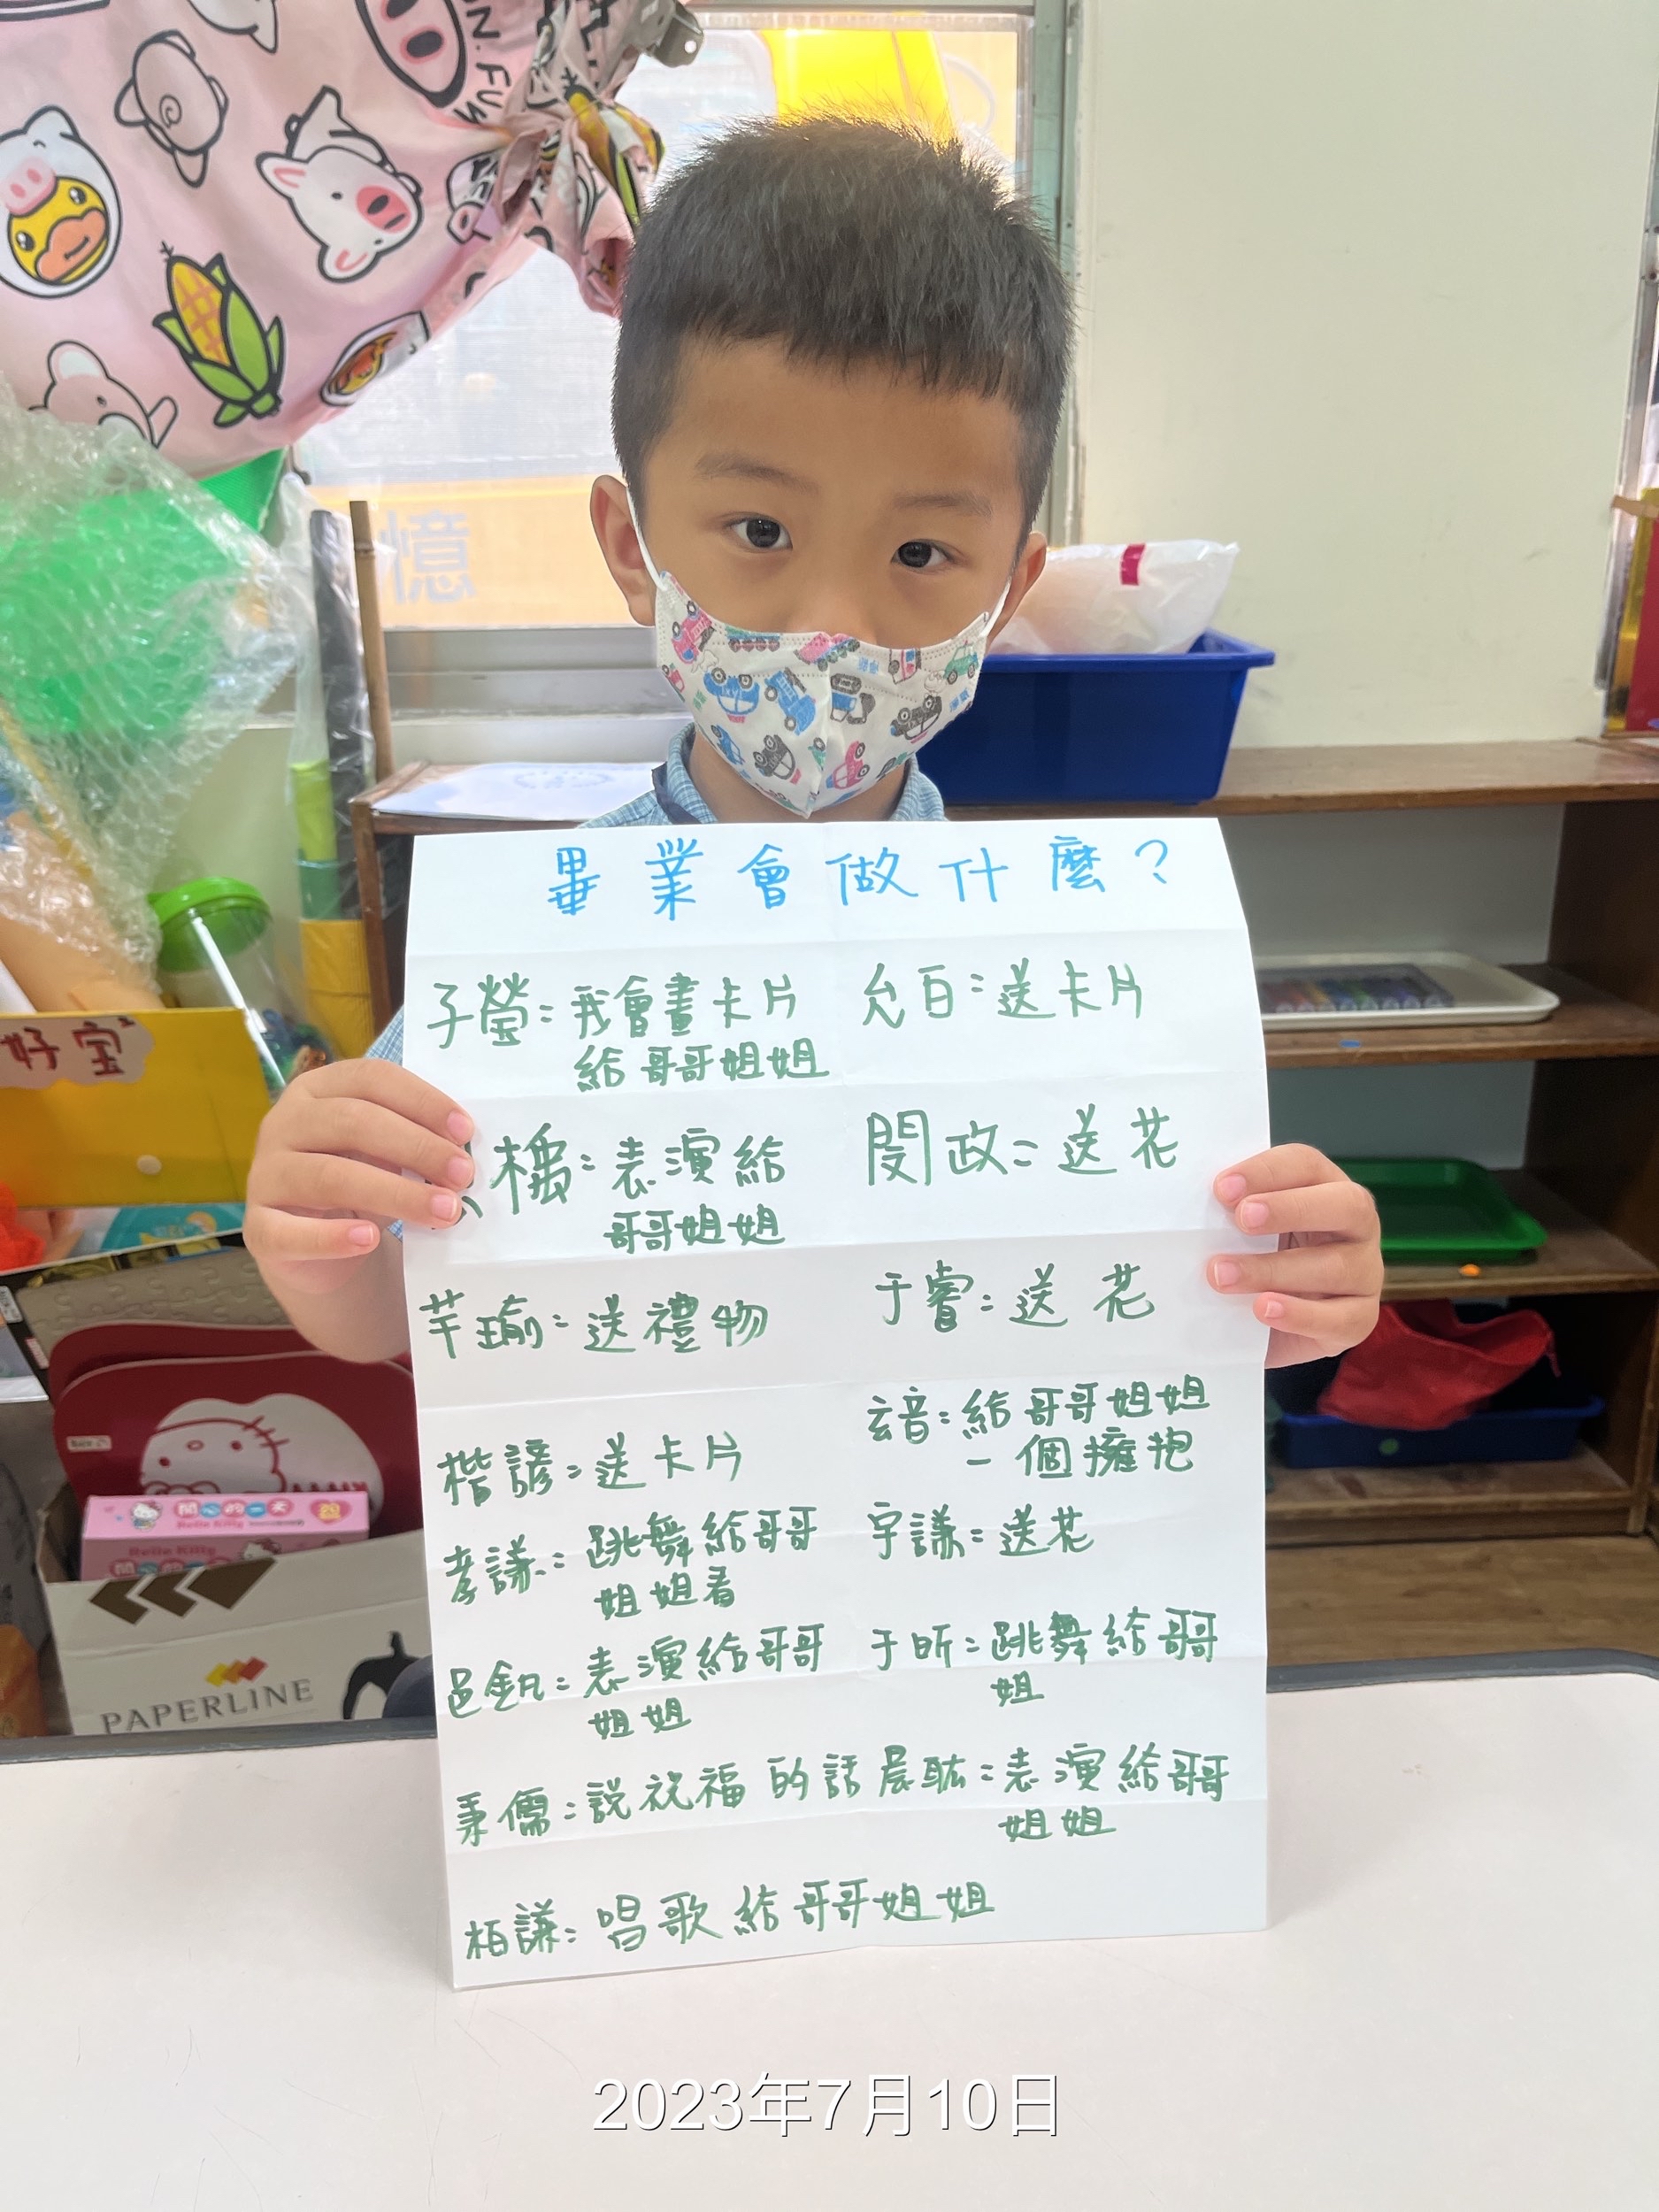 N.FUN
憶
好宝
畢業會做什麼?
子瑩:我會畫卡片
給哥哥姐姐
允百:送卡片
檽:表演給
哥哥姐姐
閔政:送花
芊瑜:送禮物
于睿:送花
玄音:給哥哥姐姐
一個擁抱
楷諺:送卡片
孝謙:跳舞給哥哥
姐姐看
宇謙:送花
邑釩:表演給哥哥
姐姐
于昕:跳舞給哥哥
姐
秉儒:說祝福的話
晨耾:表演給哥哥
姐姐
柏謙:唱歌給哥哥姐姐
開心的一天
Belle Kitty
Belle Kitty
PAPERLINE
2023年7月10日